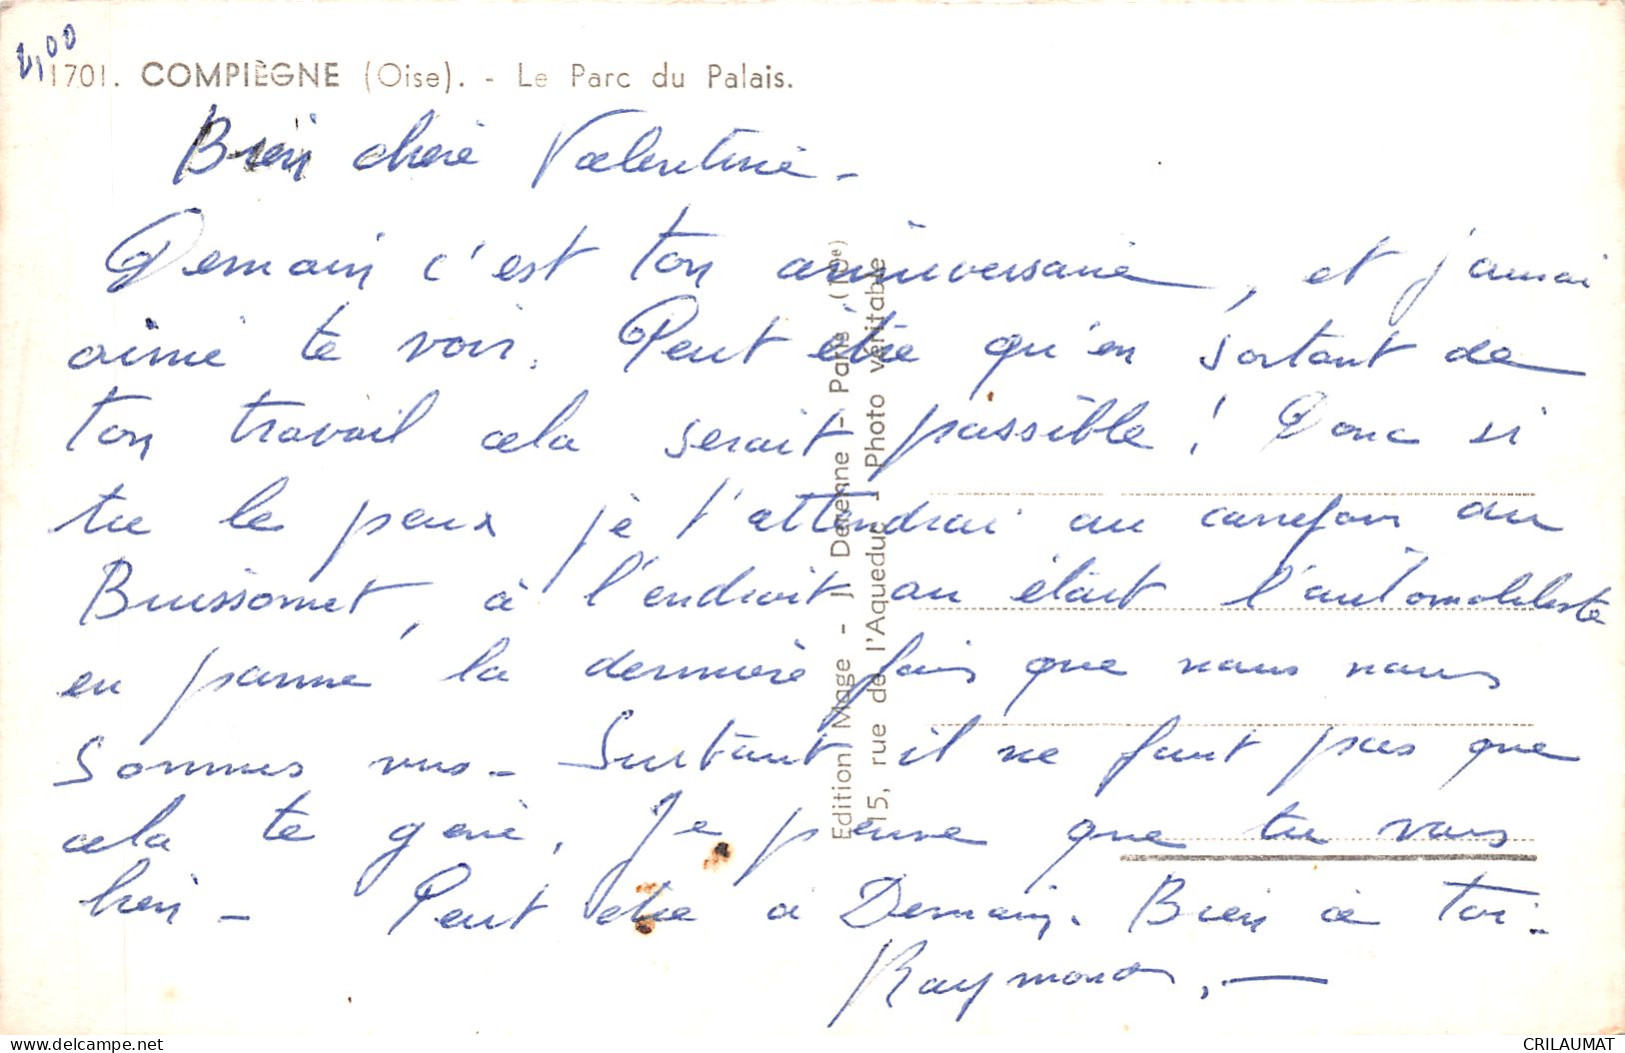 2,00
1701. COMPIÈGNE (Oise). - Le Parc du Palais.
Bien chère Valentine -
Demain c'est ton anniversaire, et j'aurai
aimé te voir. Peut être qu'en sortant de
ton travail cela serait possible ! Donc si
tu le peux je t'attendrai au carrefour du
Buissonnet, à l'endroit ou était l'automobiliste
en panne la dernière fois que nous nous
sommes vus - Surtout il ne faut pas que
cela te gène. Je pense que tu vas
bien - Peut être à Demain. Bien à toi.
Raymond. -
Edition Mage - J. Derenne - Paris (19e)
15, rue de l'Aqueduc - Photo véritable
www.delcampe.net
CRILAUMAT